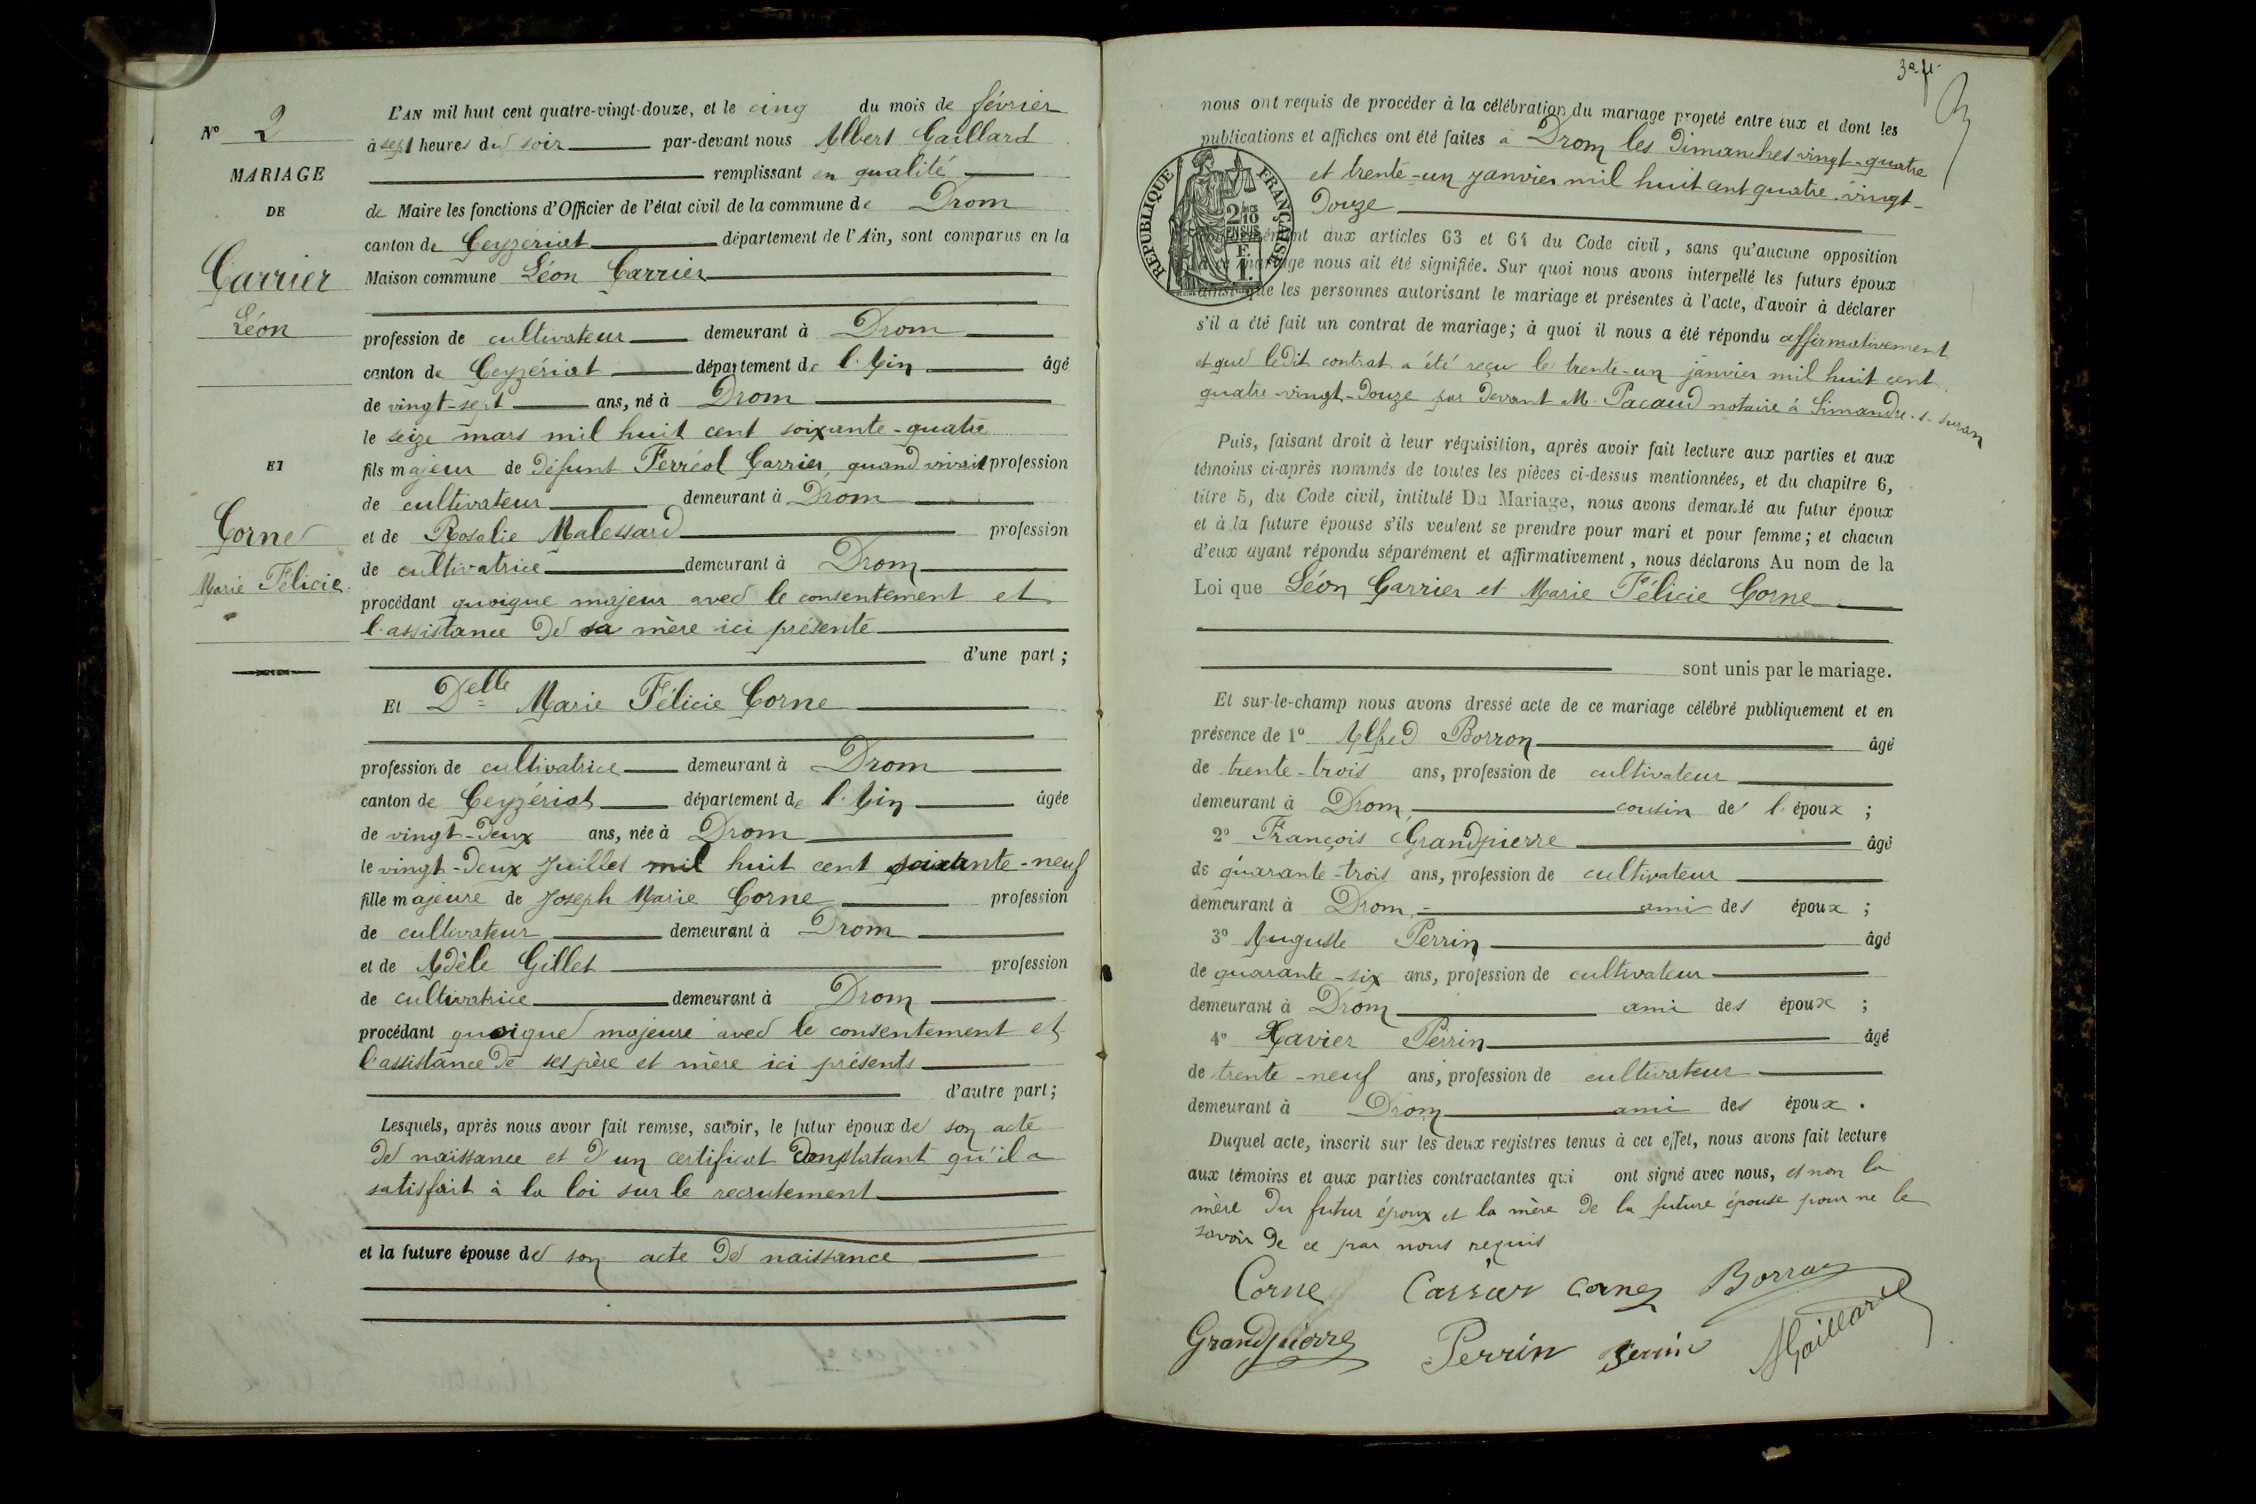 N° 2
MARIAGE
DE
Carrier
Léon
ET
Corne
Marie Félicie.
L'AN mil huit cent quatre-vingt-douze, et le cinq du mois de février
à sept heures du soir par-devant nous Albert Gaillard
remplissant en qualité
de Maire les fonctions d'Officier de l'état civil de la commune de Drom
canton de Ceyzériat département de l'Ain, sont comparus en la
Maison commune Léon Carrier
profession de cultivateur demeurant à Drom
canton de Ceyzériat département de l'Ain âgé
de vingt-sept ans, né à Drom
le seize mars mil huit cent soixante-quatre
fils majeur de défunt Ferréol Carrier, quand vivait profession
de cultivateur demeurant à Drom
et de Rosalie Malessard profession
de cultivatrice demeurant à Drom
procédant quoique majeur avec le consentement et
l'assistance de sa mère ici présente
d'une part;
Et Delle Marie Félicie Corne
profession de cultivatrice demeurant à Drom
canton de Ceyzériat département de l'Ain âgée
de vingt-deux ans, née à Drom
le vingt-deux Juillet mil huit cent soixante-neuf
fille majeure de Joseph Marie Corne profession
de cultivateur demeurant à Drom
et de Adèle Gillet profession
de cultivatrice demeurant à Drom
procédant quoique majeure avec le consentement et
l'assistance de ses père et mère ici présents
d'autre part;
Lesquels, après nous avoir fait remise, savoir, le futur époux de son acte
de naissance et d'un certificat constatant qu'il a
satisfait à la loi sur le recrutement
et la future épouse de son acte de naissance
nous ont requis de procéder à la célébration du mariage projeté entre eux et dont les
publications et affiches ont été faites à Drom les dimanches vingt-quatre
et trente-un janvier mil huit cent quatre-vingt-
douze
RÉPUBLIQUE FRANÇAISE
2/10 EN SUS
conformément aux articles 63 et 64 du Code civil, sans qu'aucune opposition
à ce mariage nous ait été signifiée. Sur quoi nous avons interpellé les futurs époux
ainsi que les personnes autorisant le mariage et présentes à l'acte, d'avoir à déclarer
s'il a été fait un contrat de mariage; à quoi il nous a été répondu affirmativement
et que ledit contrat a été reçu le trente-un janvier mil huit cent
quatre-vingt-douze par devant M. Pacaud notaire à Simandre-s-Suran
Puis, faisant droit à leur réquisition, après avoir fait lecture aux parties et aux
témoins ci-après nommés de toutes les pièces ci-dessus mentionnées, et du chapitre 6,
titre 5, du Code civil, intitulé Du Mariage, nous avons demandé au futur époux
et à la future épouse s'ils veulent se prendre pour mari et pour femme; et chacun
d'eux ayant répondu séparément et affirmativement, nous déclarons Au nom de la
Loi que Léon Carrier et Marie Félicie Corne
sont unis par le mariage.
Et sur-le-champ nous avons dressé acte de ce mariage célébré publiquement et en
présence de 1° Alfred Borron âgé
de trente-trois ans, profession de cultivateur
demeurant à Drom, cousin de l'époux;
2° François Grandpierre âgé
de quarante-trois ans, profession de cultivateur
demeurant à Drom, ami des époux;
3° Auguste Perrin âgé
de quarante-six ans, profession de cultivateur
demeurant à Drom ami des époux;
4° Xavier Perrin âgé
de trente-neuf ans, profession de cultivateur
demeurant à Drom ami des époux.
Duquel acte, inscrit sur les deux registres tenus à cet effet, nous avons fait lecture
aux témoins et aux parties contractantes qui ont signé avec nous, et non la
mère du futur époux et la mère de la future épouse pour ne le
savoir de ce par nous requis
Corne Carrier Corne Borron
Grandpierre Perrin Perrin AGaillard